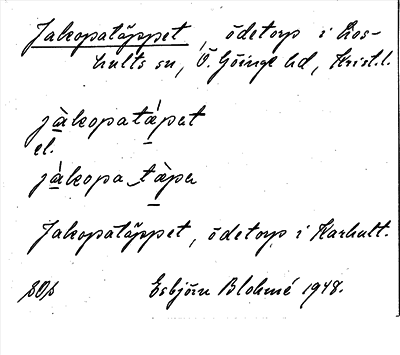 Jakopatäppet, ödetorp i Los-
hults sn, Ö. Göinge hd, Krist. l.
jàkopatápet
el.
jákopa tàpa
Jakopatäppet, ödetorp i Harhult.
Esbjörn Blohmé 1948.